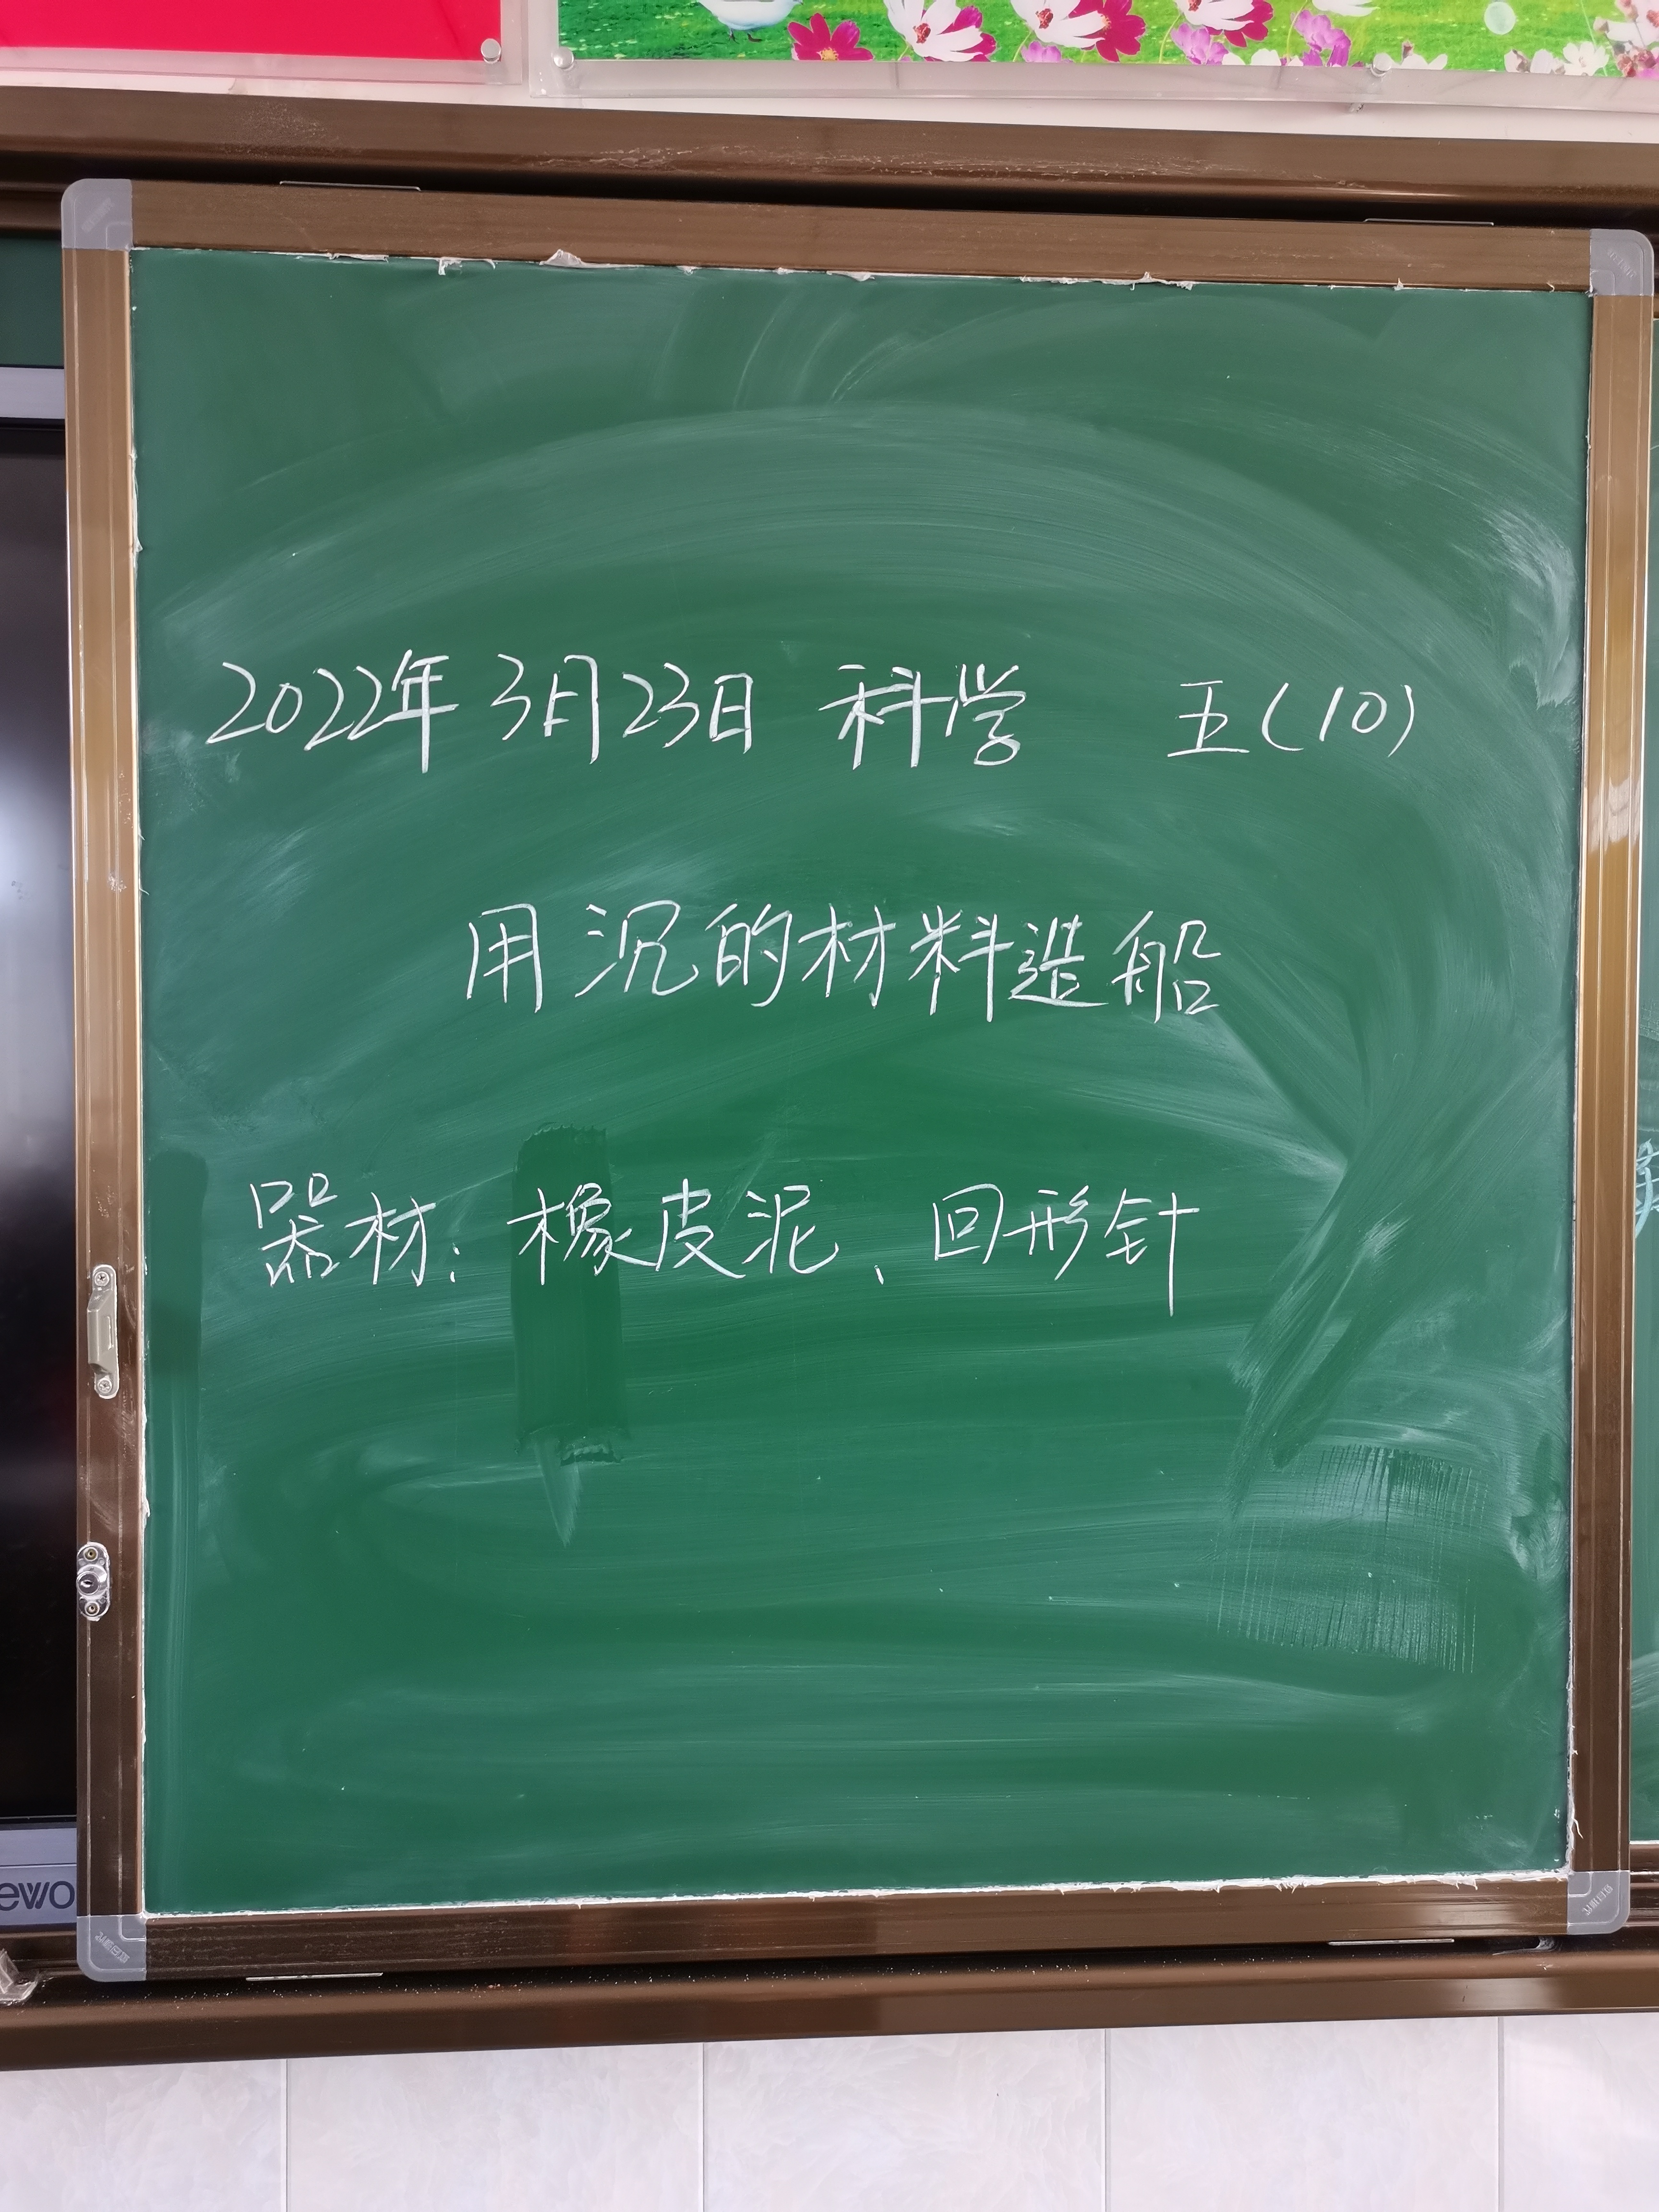 2022年3月23日 科学 五(10)
用沉的材料造船
器材:橡皮泥、回形针
ewo